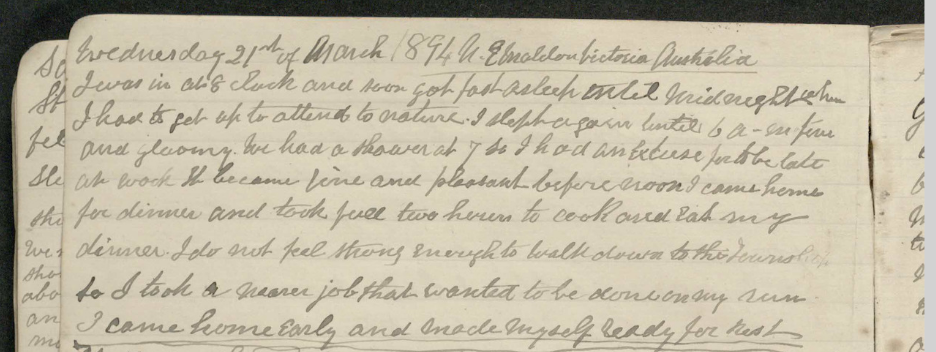 Wednesday 21st of March 1894 N. E Maldon Victoria Australia
I was in at 8 clock and soon got fast asleep until Midneght when
I had to get up to attend to nature. I slept again until 6 a-m fine
and gloomy. We had a shower at 7 so I had an Excuse for to be late
at work It became fine and pleasant before noon I came home
for dinner and took full two hours to cook and Eat my
dinner. I do not feel strong enough to walk down to the Township
so I took a nearer job that wanted to be done on my run
I came home Early and made myself ready for Rest